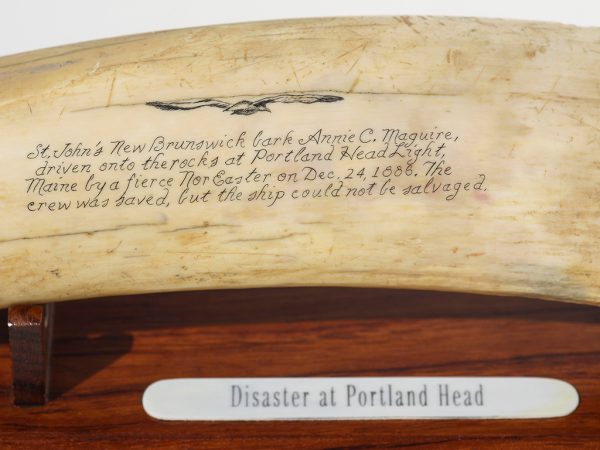 St. John's New Brunswick bark Annie C. Maguire,
driven onto the rocks at Portland Head Light,
Maine by a fierce Nor Easter on Dec. 24, 1886. The
crew was saved, but the ship could not be salvaged.
Disaster at Portland Head